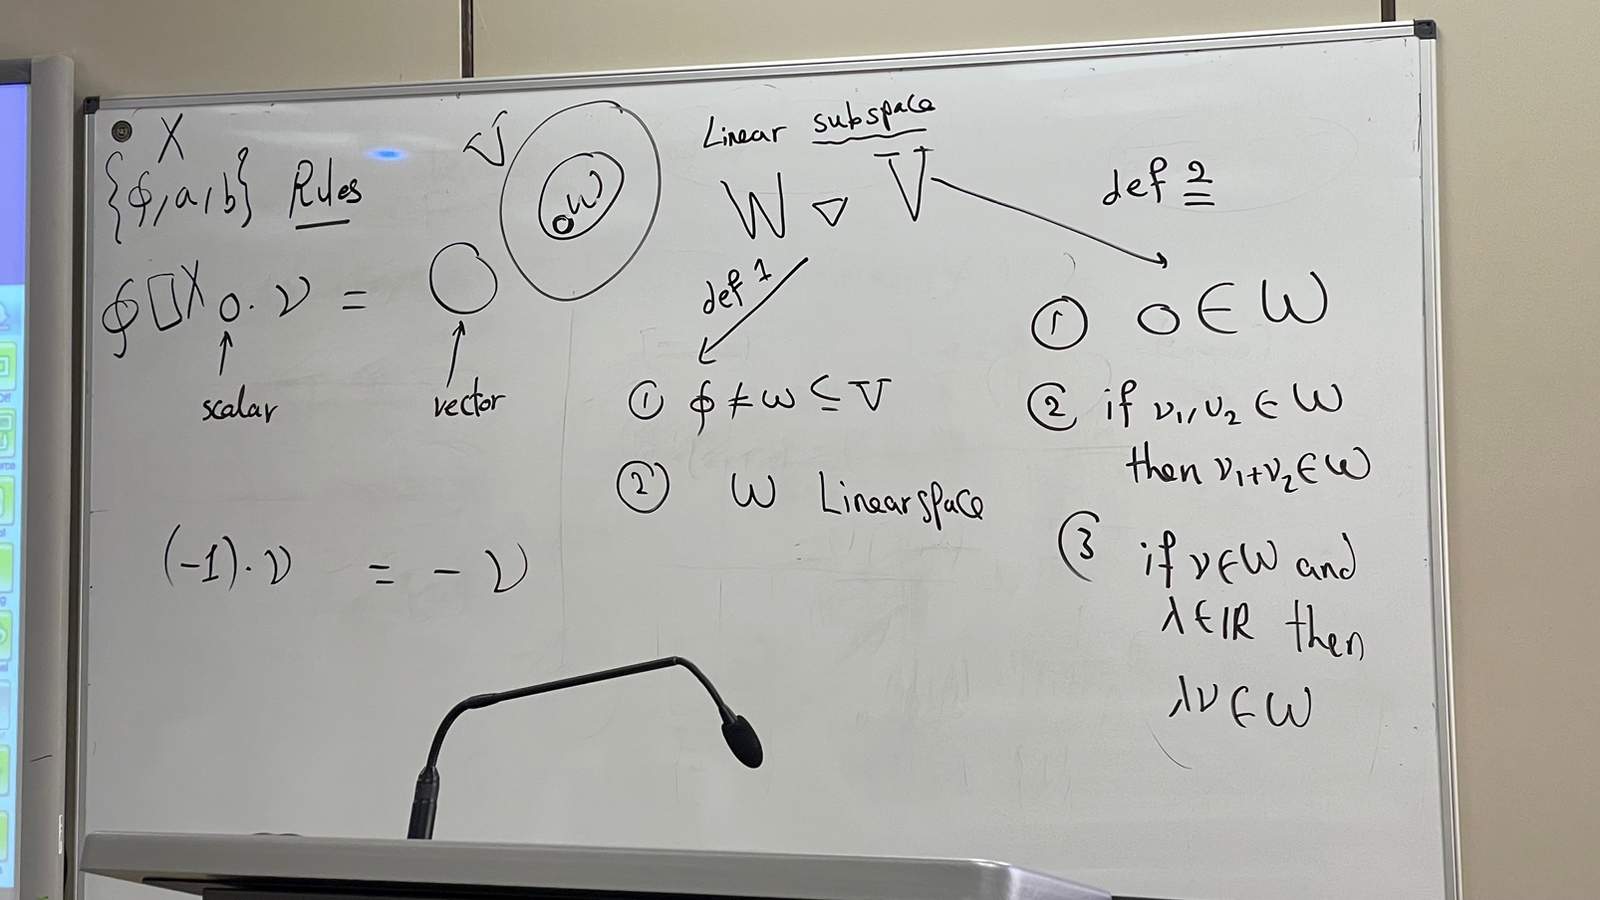 X
{ϕ, a, b} Rules
ϕ □ X
0 · v = O
scalar
vector
(-1) · v = - v
V
W
0
Linear subspace
W ▽ V
def 1
① ϕ ≠ W ⊆ V
② W Linear space
def 2
① 0 ∈ W
② if v₁, v₂ ∈ W
then v₁+v₂ ∈ W
③ if v ∈ W and
λ ∈ IR then
λv ∈ W